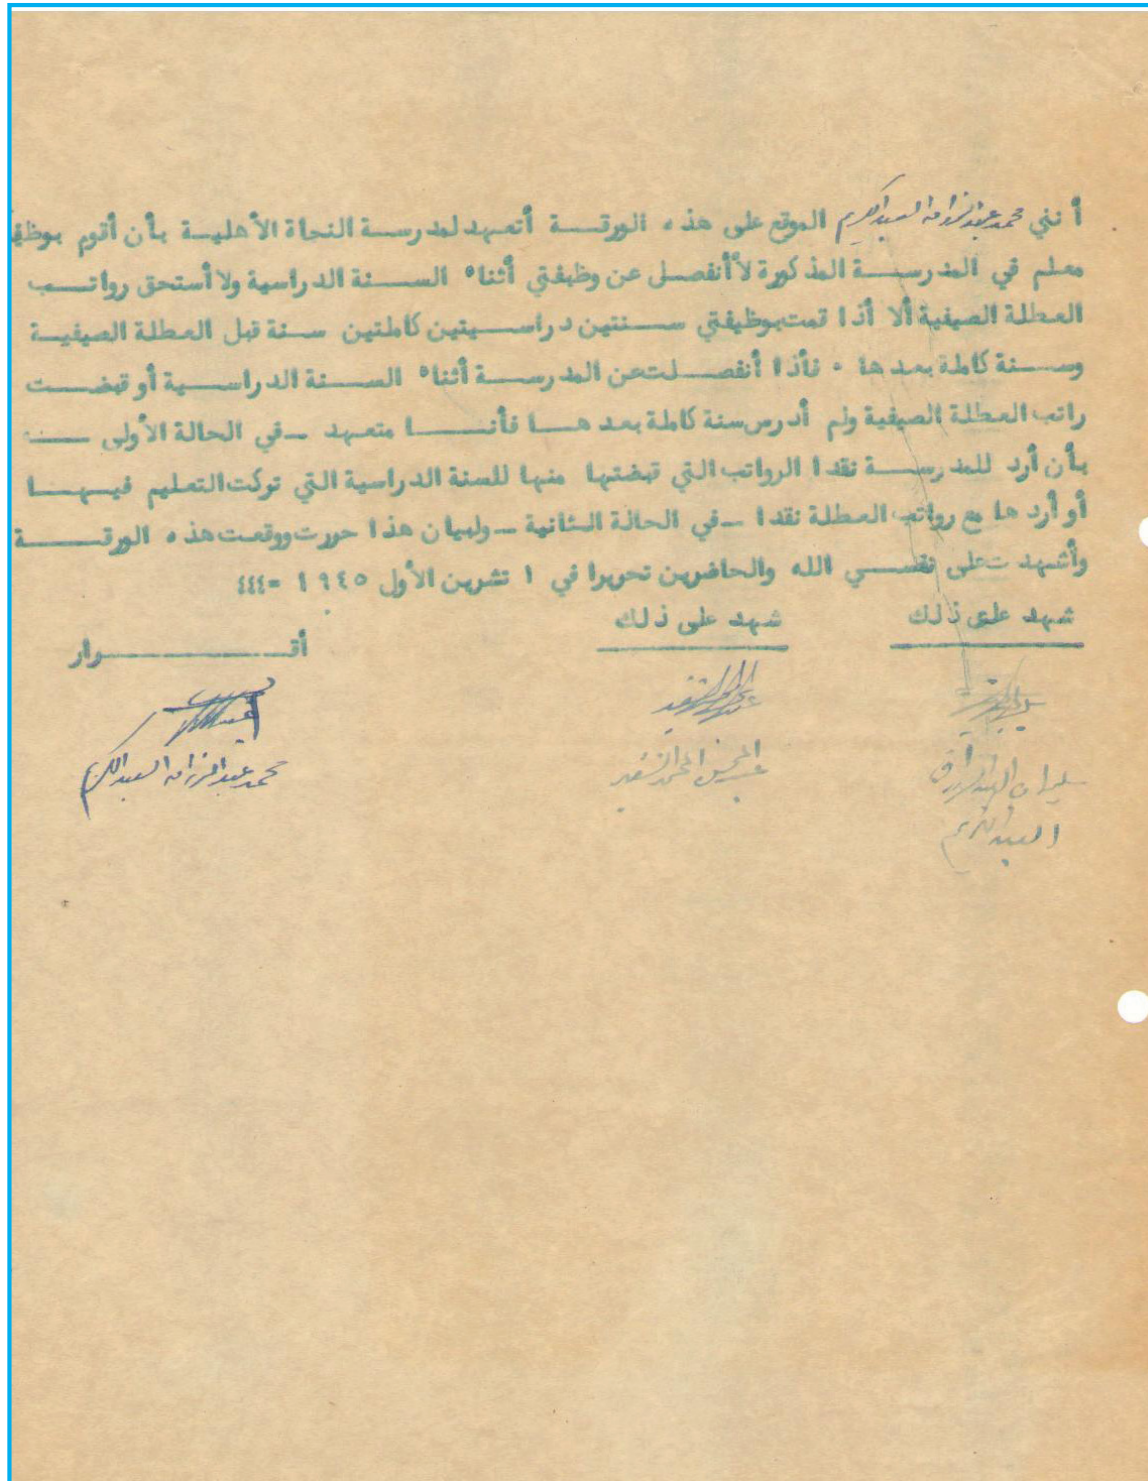 أنني محمد عبد الرزاق العبد الكريم الموقع على هذه الورقـــة أتعهد لمدرســة النجاة الأهليــة بأن أقوم بوظيف
معلم في المدرســـة المذكورة لاأنفصل عن وظيفتي أثناء الســنة الدراسية ولا أستحق رواتــب
العطلة الصيفية ألا أذا قمت بوظيفتي ســنتين دراســيتين كاملتين سنة قبل العطلة الصيفيــة
وســنة كاملة بعدها ٠ فأذا أنفصــلت عن المدرســة أثناء الســنة الدراســية أو قبضــت
راتب العطلة الصيفية ولم أدرس سنة كاملة بعدهــا فأنــــا متعهد ـ في الحالة الأولى ــ
بأن أرد للمدرســة نقدا الرواتب التي قبضتها منها للسنة الدراسية التي تركت التعليم فيهــا
أو أردها مع رواتب العطلة نقدا ـ في الحالة الثانية ـ ولبيان هذا حررت ووقعت هذه الورقـــة
وأشهدت على نفســي الله والحاضرين تحريرا في ١ تشرين الأول ١٩٤٥ =٤٤٤
شهد على ذلك شهد على ذلك
أقـــــــــرار
سليمان العبد الرزاق عبد المحسن المحمد الشقير محمد عبد الرزاق العبد الكريم
العبد الكريم